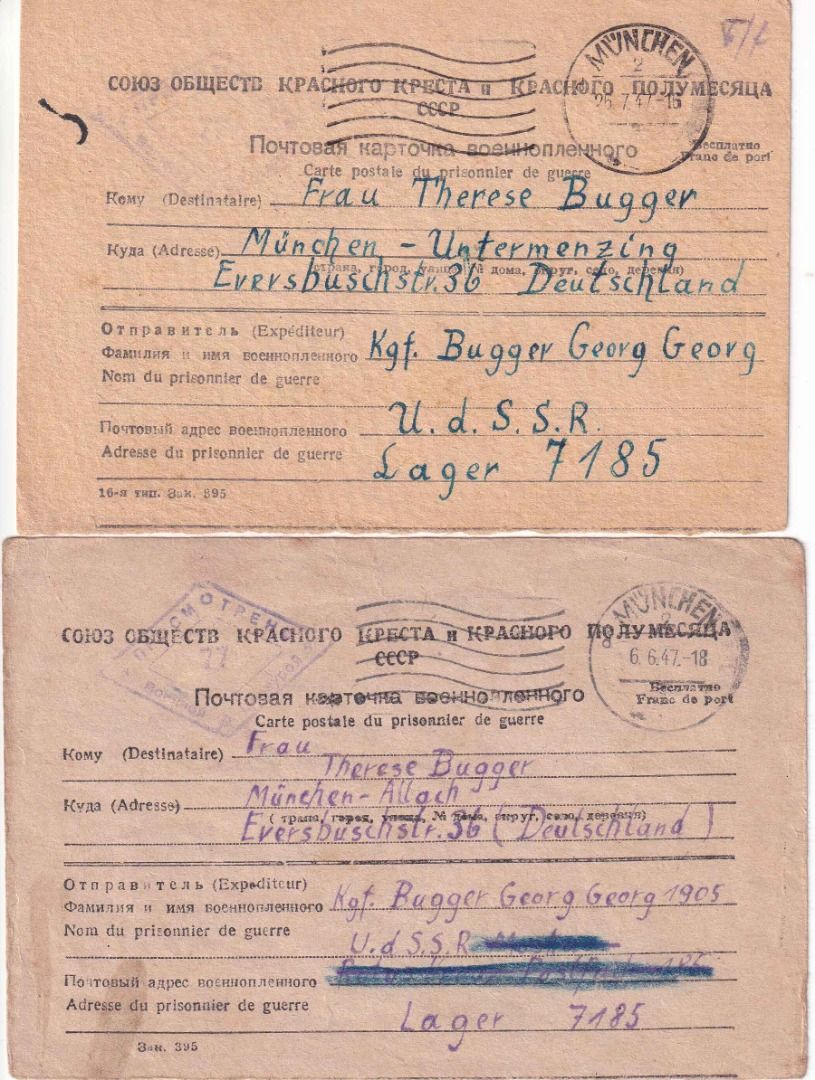 MÜNCHEN
2
26.7.47.-16
СОЮЗ ОБЩЕСТВ КРАСНОГО КРЕСТА и КРАСНОГО ПОЛУМЕСЯЦА
СССР
Почтовая карточка военнопленного
Бесплатно
Carte postale du prisonnier de guerre
Franc de port
Кому (Destinataire) Frau Therese Bugger
Куда (Adresse) München - Untermenzing
(страна, город, улица, № дома, округ, село, деревня)
Eversbuschstr. 36 Deutschland
Отправитель (Expéditeur)
Фамилия и имя военнопленного Kgf. Bugger Georg Georg
Nom du prisonnier de guerre
Почтовый адрес военнопленного U. d. S. S. R.
Adresse du prisonnier de guerre Lager 7185
16-я тип. Зак. 395
MÜNCHEN
2
6.6.47.-18
СОЮЗ ОБЩЕСТВ КРАСНОГО КРЕСТА и КРАСНОГО ПОЛУМЕСЯЦА
СССР
Почтовая карточка военнопленного
Бесплатно
Carte postale du prisonnier de guerre
Franc de port
Кому (Destinataire) Frau
Therese Bugger
Куда (Adresse) München - Allach
(страна, город, улица, № дома, округ, село, деревня)
Eversbuschstr. 36 (Deutschland)
Отправитель (Expéditeur)
Фамилия и имя военнопленного Kgf. Bugger Georg Georg 1905
Nom du prisonnier de guerre
U. d S. S. R
Почтовый адрес военнопленного
Adresse du prisonnier de guerre
Lager 7185
Зак. 395